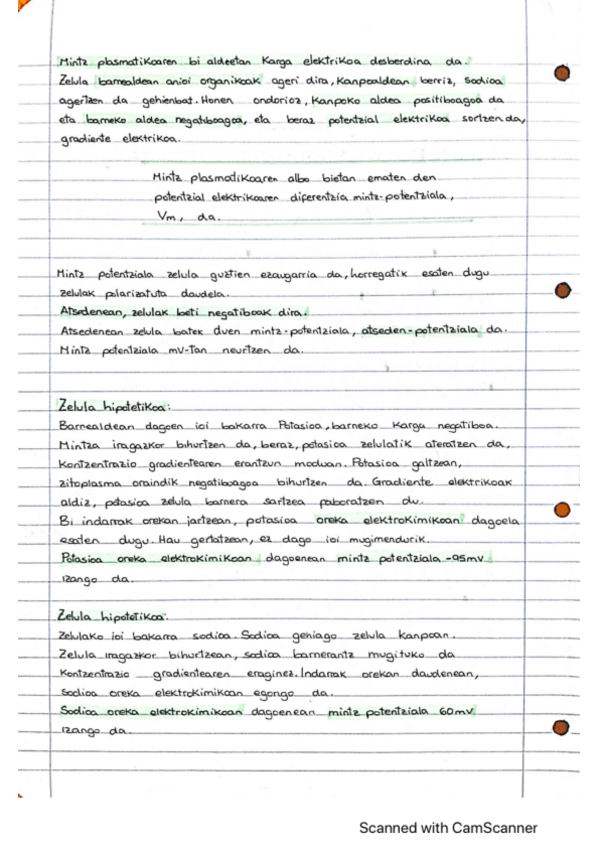 Mintz plasmatikoaren bi aldeetan Karga elektrikoa desberdina da.
Zelula barnealdean anioi organikoak ageri dira, Kanpoaldean berriz, sodioa
agertzen da gehienbat. Honen ondorioz, Kanpoko aldea positiboagoa da
eta barneko aldea negatiboagoa, eta beraz potentzial elektrikoa sortzen da,
gradiente elektrikoa.
Mintz plasmatikoaren albo bietan ematen den
potentzial elektrikoaren diferentzia mintz-potentziala,
Vm, da.
Mintz potentziala zelula guztien ezaugarria da, horregatik esaten dugu
zelulak polarizatuta daudela.
Atsedenean, zelulak beti negatiboak dira.
Atsedenean zelula batek duen mintz-potentziala, atseden-potentziala da.
Mintz potentziala mV-tan neurtzen da.
Zelula hipotetikoa:
Barnealdean dagoen ioi bakarra Potasioa, barneko Karga negatiboa.
Mintza iragazkor bihurtzen da, beraz, potasioa zelulatik ateratzen da,
Kontzentrazio gradientearen erantzun moduan. Potasioa galtzean,
zitoplasma oraindik negatiboagoa bihurtzen da. Gradiente elektrikoak
aldiz, potasioa zelula barnera sartzea faboratzen du.
Bi indarrak orekan jartzean, potasioa oreka elektrokimikoan dagoela
esaten dugu. Hau gertatzean, ez dago ioi mugimendurik.
Potasioa oreka elektrokimikoan dagoenean mintz potentziala -95mV
izango da.
Zelula hipotetikoa:
Zelulako ioi bakarra sodioa. Sodioa gehiago zelula kanpoan.
Zelula iragazkor bihurtzean, sodioa barnerantz mugituko da
Kontzentrazio gradientearen eraginez. Indarrak orekan daudenean,
Sodioa oreka elektrokimikoan egongo da.
Sodioa oreka elektrokimikoan dagoenean mintz potentziala 60mV
izango da.
Scanned with CamScanner